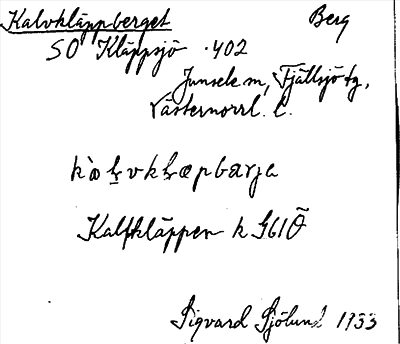 Kalvkläppberget Berg
SO Kläppsjö 402
Junsele sn, Fjällsjö tg,
Västernorrl. l.
Kalfkläppen k G61Ö
Sigvard Sjölund 1933